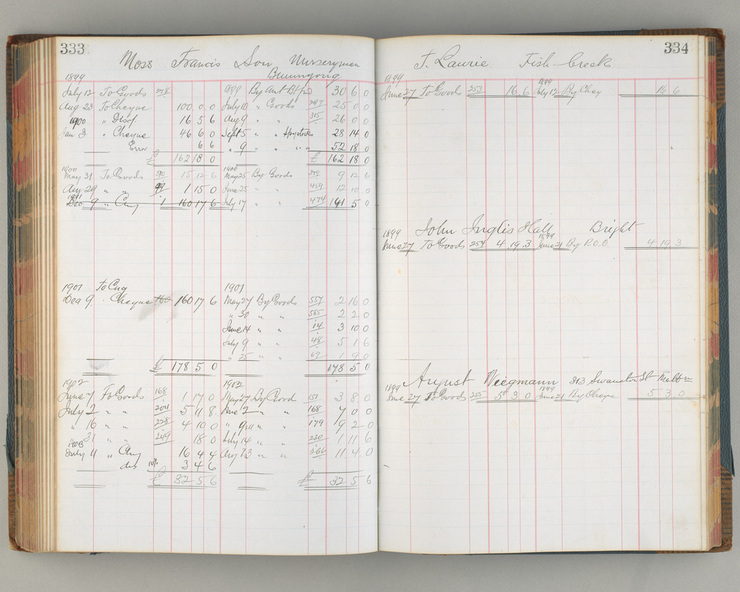 333
Moss Francis Son Nurserymen
Buninyong
1899
July 12 To Goods 1899 By Amt 30 6 0
Aug 23 To Cheque 100 0 0 July 10 " Goods 25 0 0
1900 " 16 5 6 Aug 9 " " 26 0 0
Jan 3 " Cheque 46 6 0 Sept 5 " " 28 14 0
6 6 " 9 " " 52 18 0
£ 162 18 0 £ 162 18 0
1900 1900
May 31 To Goods 15 12 6 May 25 By Goods 9 12 6
Aug 29 " 1 15 0 June 25 " " 459 12 10 0
Dec 9 " 160 17 6 July 17 " " 474 141 5 0
1901 To 1901
Dec 9 Cheque 160 17 6 May 27 By Goods 557 2 16 0
" 30 " " 565 2 2 0
June 14 " " 14 3 10 0
July 9 " " 48 5 1 6
" 25 " "
£ 178 5 0 178 5 0
1902 1902
June 7 To Goods 168 1 17 0 May 27 By Good 3 8 0
July 2 " " 204 5 11 8 June 2 " " 168 7 0 0
" 16 " " 228 4 10 0 " 9 " " 179 9 2 0
" 31 " " 249 18 0 July 14 " " 220 1 11 6
July 11 " 16 4 4 Aug 13 " " 266 11 4 0
3 4 6
£ 32 5 6 £ 32 5 6
334
T. Laurie Fish Creek
1899 1899
June 27 To Goods 253 16 6 July 12 By Cheq 16 6
John Inglis Hall Bright
1899 1899
June 27 To Goods 254 4 19 3 June 21 By P.O.O 4 19 3
August Wiegmann 313 Swanston St Melb
1899 1899
June 27 To Goods 255 5 3 0 June 21 By Cheque 5 3 0